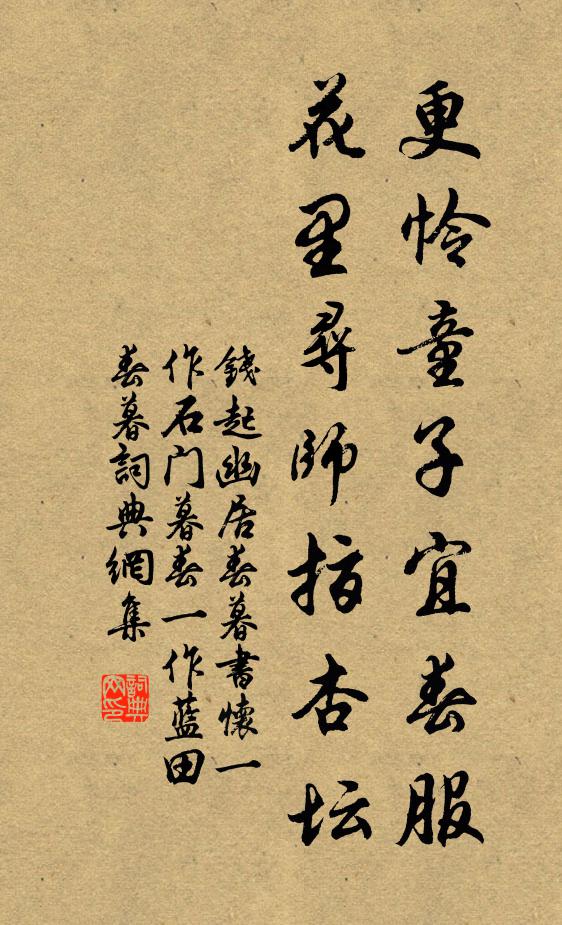 更怜童子宜春服
花里尋師指杏坛
錢起幽居春暮書懷一
作石门暮春一作藍田
春暮詞典網集
詞典
网印